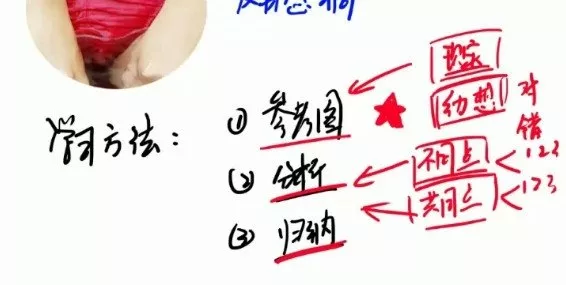 现实
幼想 对
① 参考图 ★ 错
学习方法:
② 分析 不同点 < 123
③ 归纳 共同点 < 123